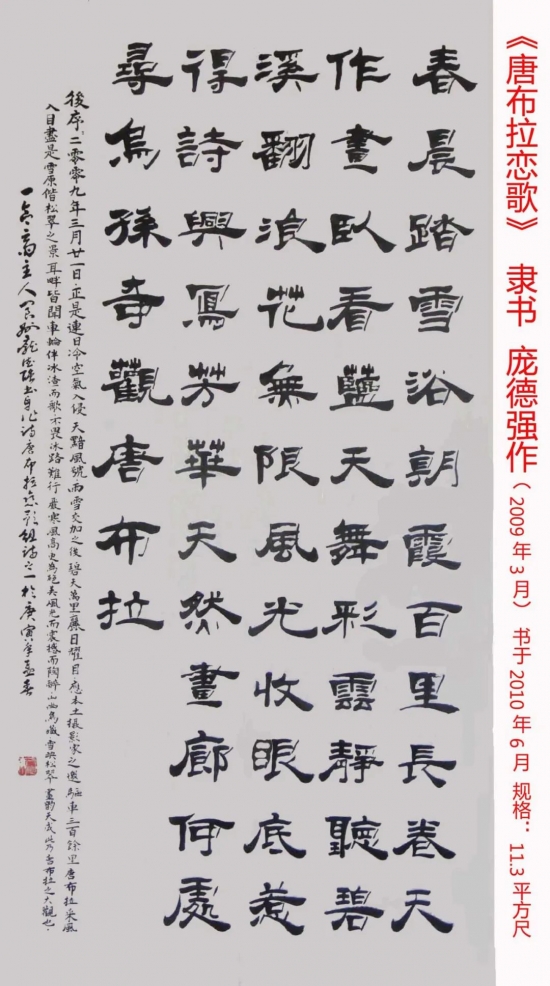 《唐布拉恋歌》 隶书 庞德强作（2009年3月） 书于2010年6月 规格：11.3平方尺
春晨踏雪浴朝霞百里長卷天
作畫臥看藍天舞彩雲靜聽碧
溪翻浪花無限風光收眼底惹
得詩興寫芳華天然畫廊何處
尋烏孫奇觀唐布拉
後序：二零零九年三月廿一日，正是連日冷空氣入侵天黯風號雨雪交加之後碧天萬里麗日耀目應本土攝影家之邀驅車三百餘里唐布拉采風
入目盡是雪原偕松翠之景耳畔皆聞車輪伴冰渣而歌不畏冰路難行嚴寒風高更為絕美風光而震撼而陶醉山曲鳥雪映松翠畫韵天成此乃唐布拉之大觀也
齋主人龐德強書自作詩唐布拉戀歌組詩之一於庚寅年孟春